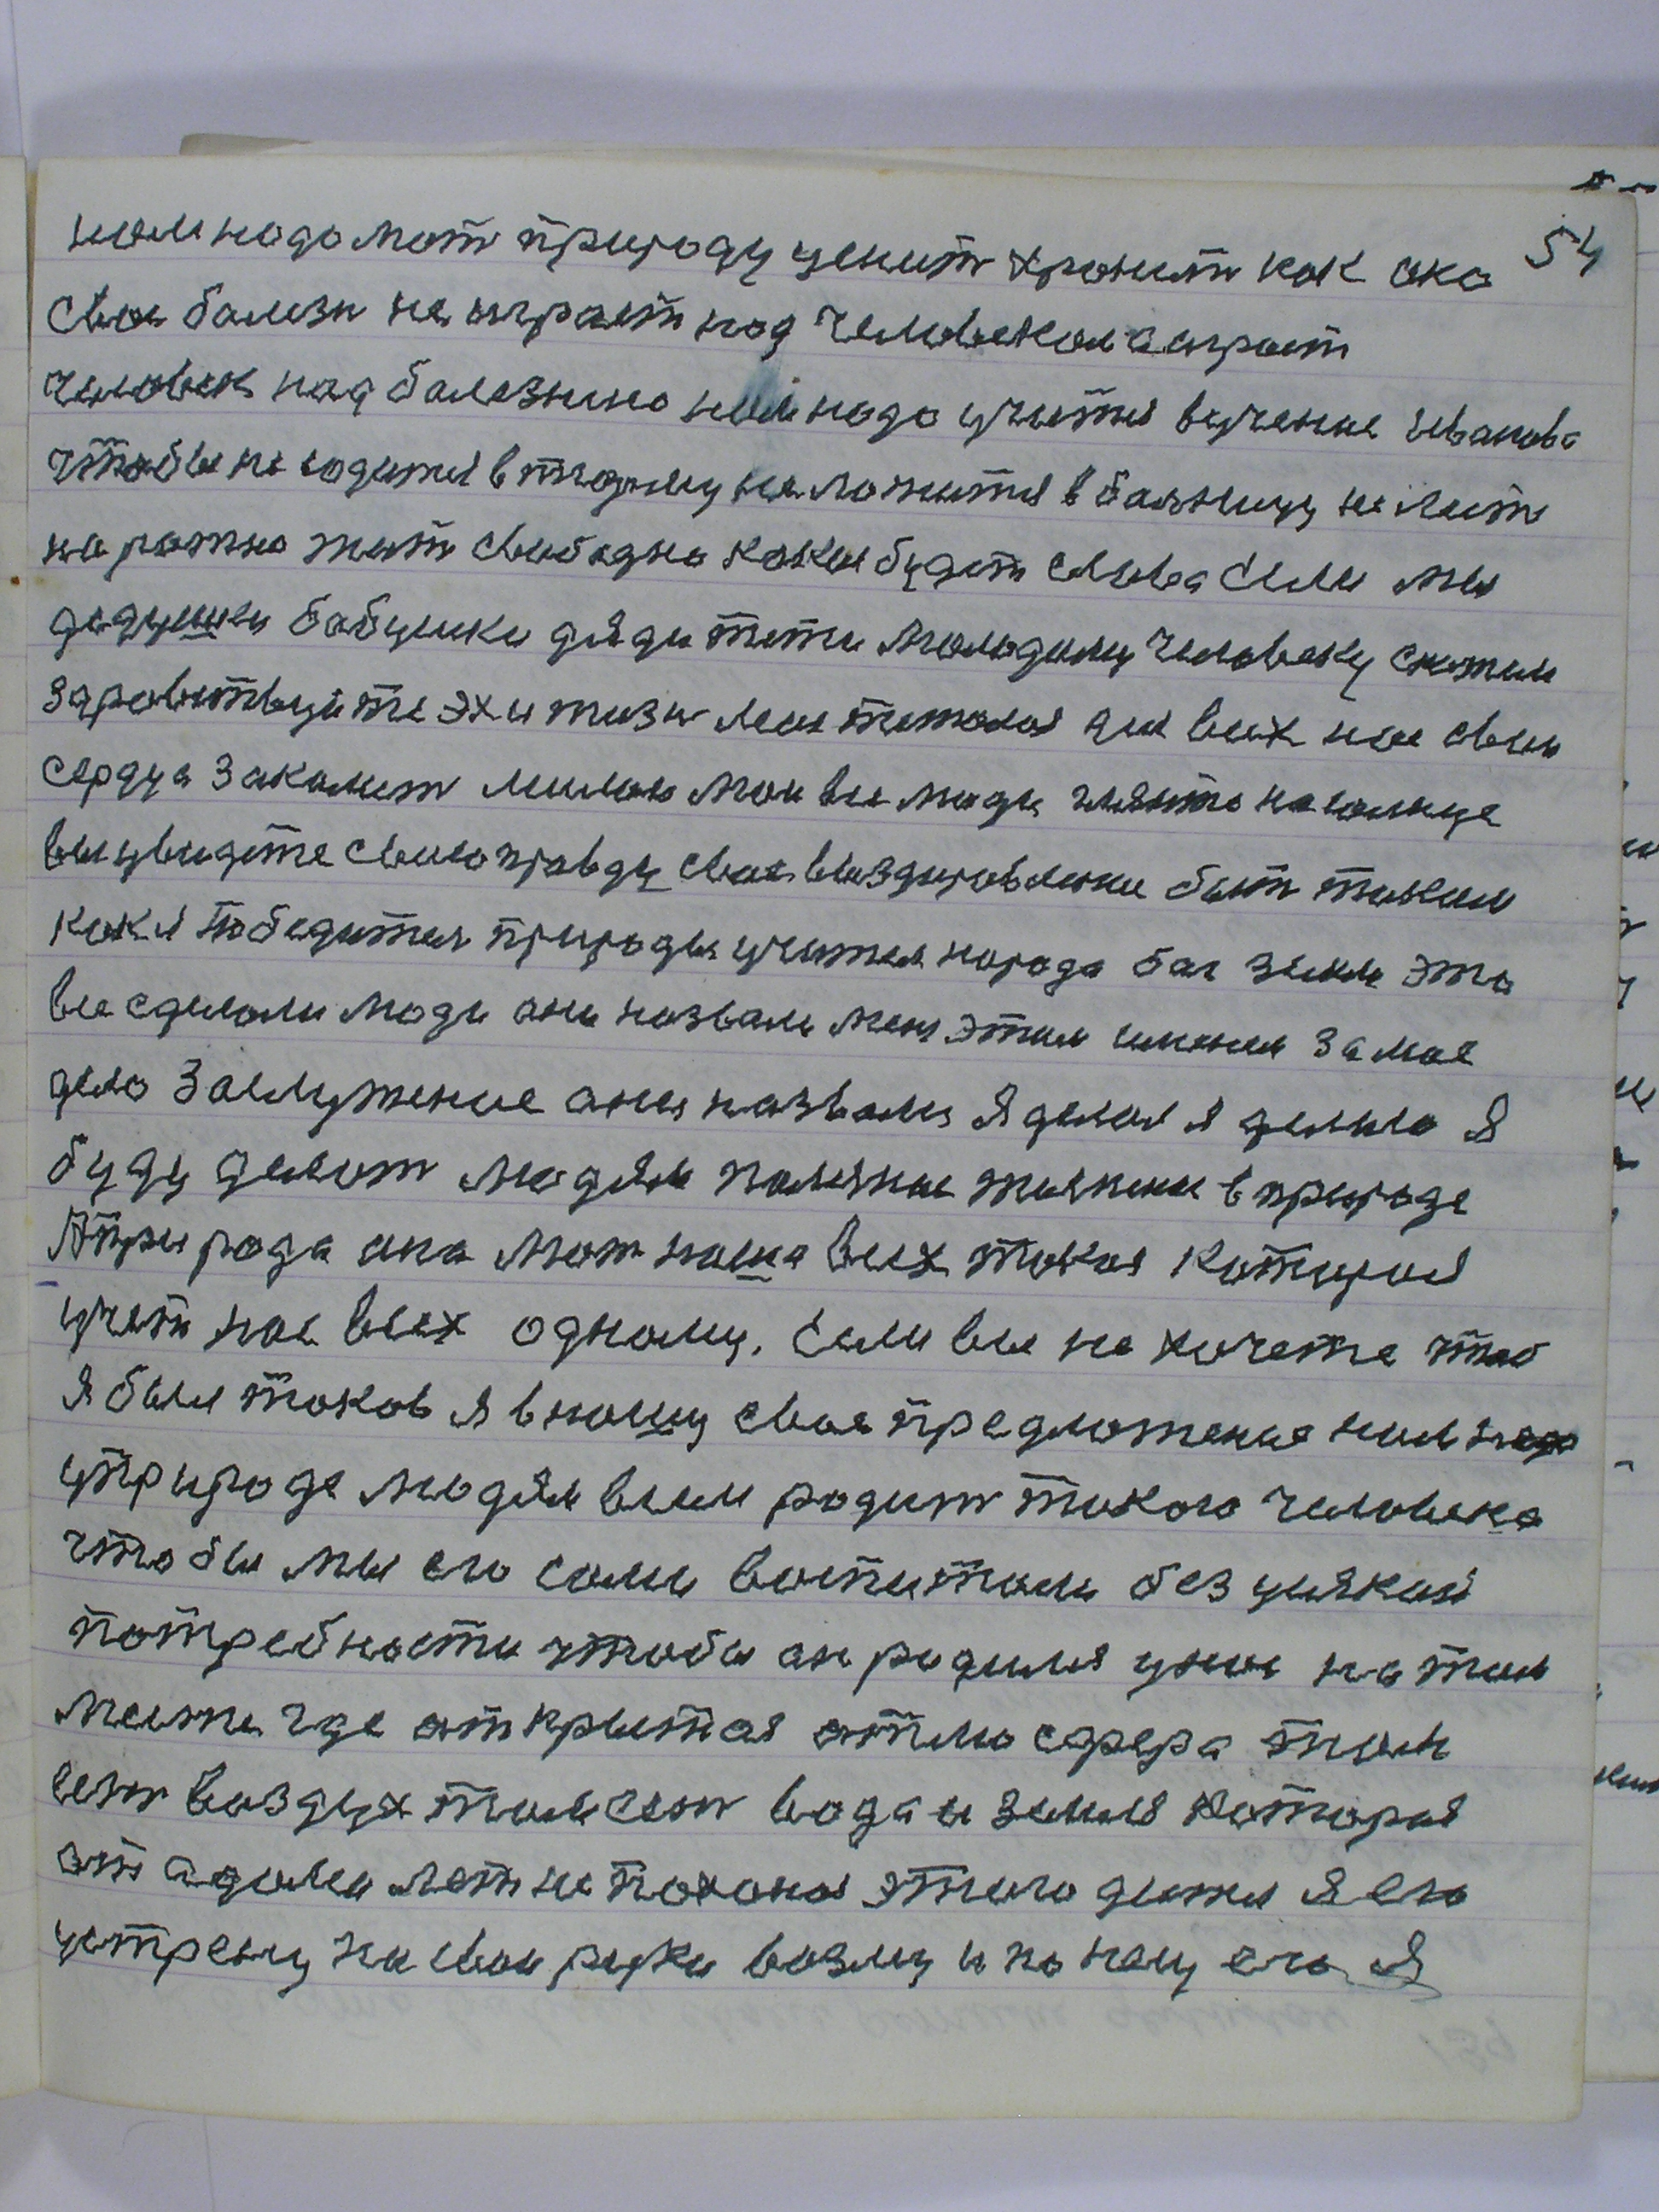 54
нам надо мат природу ценит хронит как око
свое балезн не играет над человеком а играит
человек над балезнию нам надо учится вучение Иванова
чтобы не содится втюрму не ложится в балницу не лест
на рожно жит свободно какая будит слова если мы
дедушки бабушки дяди тети молодому человеку скажем
здравствуйте эх и жизн моя тижолая для всих нас свои
сердца закалит милаи мои все люди гляньте на солнце
вы увидете свою правду свое выздоровление быт таким
как я победител природы учител народа бог земли это
все сделали люди они назвали меня этим именем за мое
дело заслужение ани назвали я делал я делаю я
буду делат людям полезное жизнии в природе
Природа ана мат наша всех токая каторая
учет нас всех одному. Если вы не хочете чтоб
я был таков я вношу свое предложение нам надо
уприроде людям всем родит такого человека
чтобы мы его сами воспитали без усякай
потребности чтобы ан родился унас на том
месте где аткрытая атмосфера там
естваздух там ест вода и земля которая
от адама лет не похоная этого дитя я его
устречу на свои руки возму и понесу его я